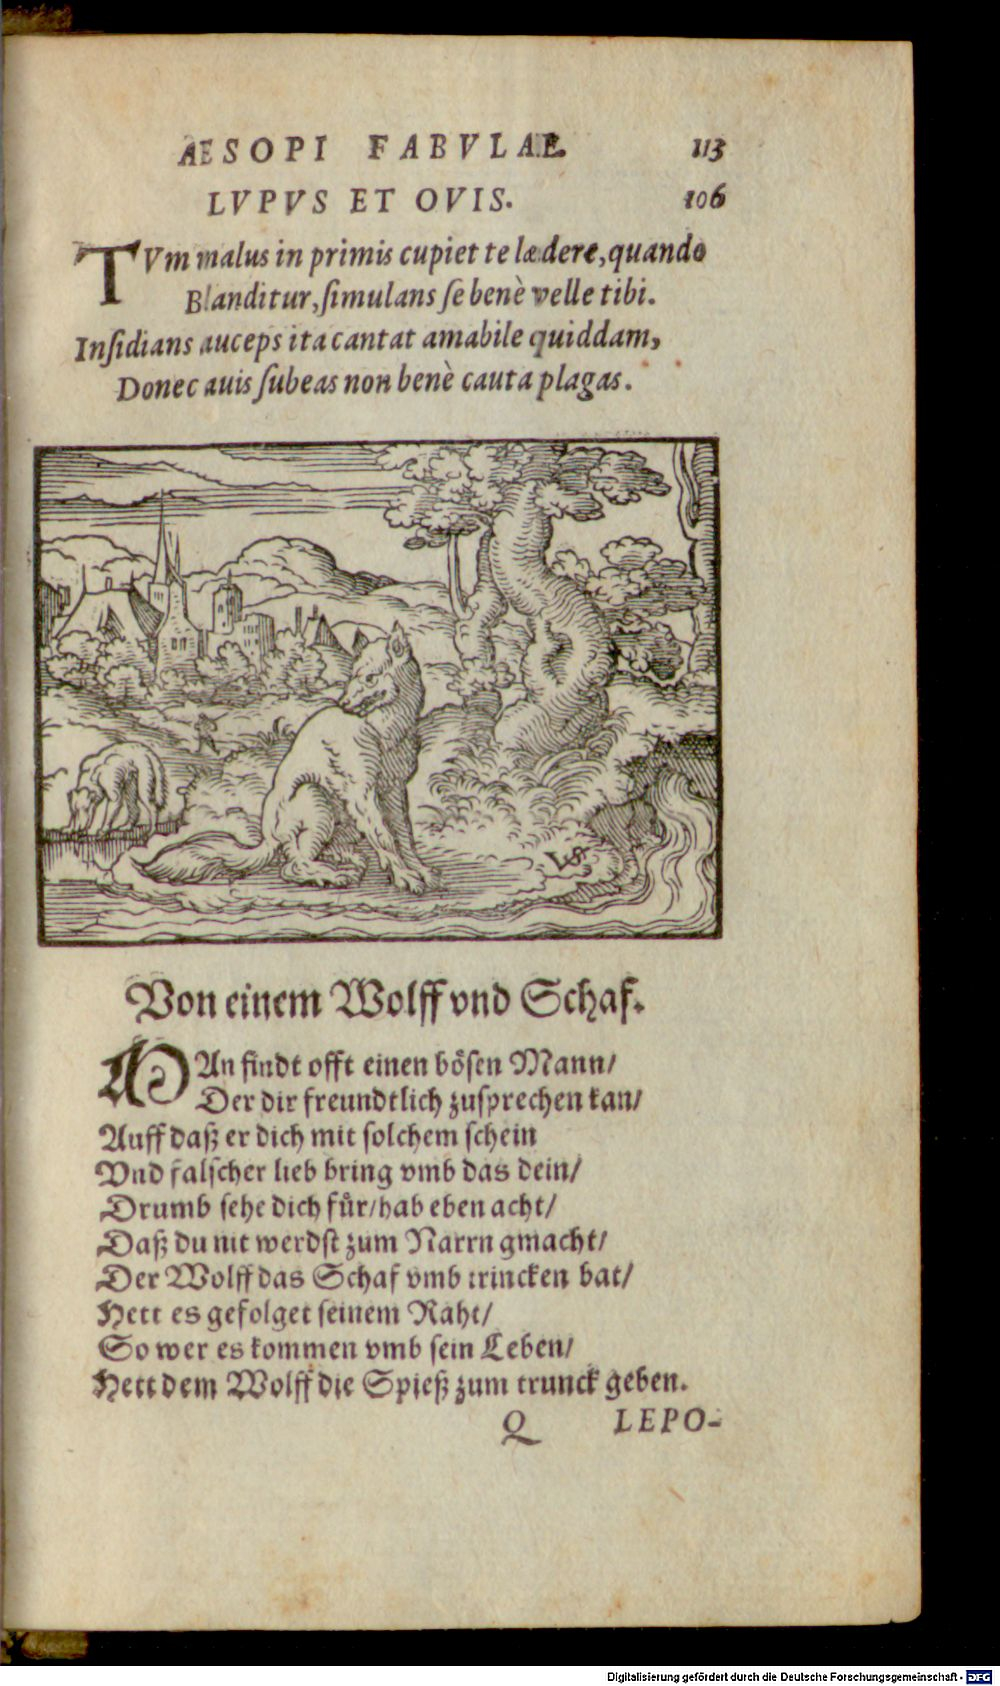 AESOPI FABVLAE. 113
LVPVS ET OVIS. 106
TVm malus in primis cupiet te lædere, quando
Blanditur, ſimulans ſe benè velle tibi.
Inſidians auceps ita cantat amabile quiddam,
Donec auis ſubeas non benè cauta plagas.
Von einem Wolff vnd Schaf.
MAn findt offt einen böſen Mann/
Der dir freundtlich zuſprechen kan/
Auff daß er dich mit ſolchem ſchein
Vnd falſcher lieb bring vmb das dein/
Drumb ſehe dich fuͤr/hab eben acht/
Daß du nit werdſt zum Narrn gmacht/
Der Wolff das Schaf vmb trincken bat/
Hett es gefolget ſeinem Raht/
So wer es kommen vmb ſein Leben/
Hett dem Wolff die Spieß zum trunck geben.
Q LEPO-
Digitalisierung gefördert durch die Deutsche Forschungsgemeinschaft - DFG